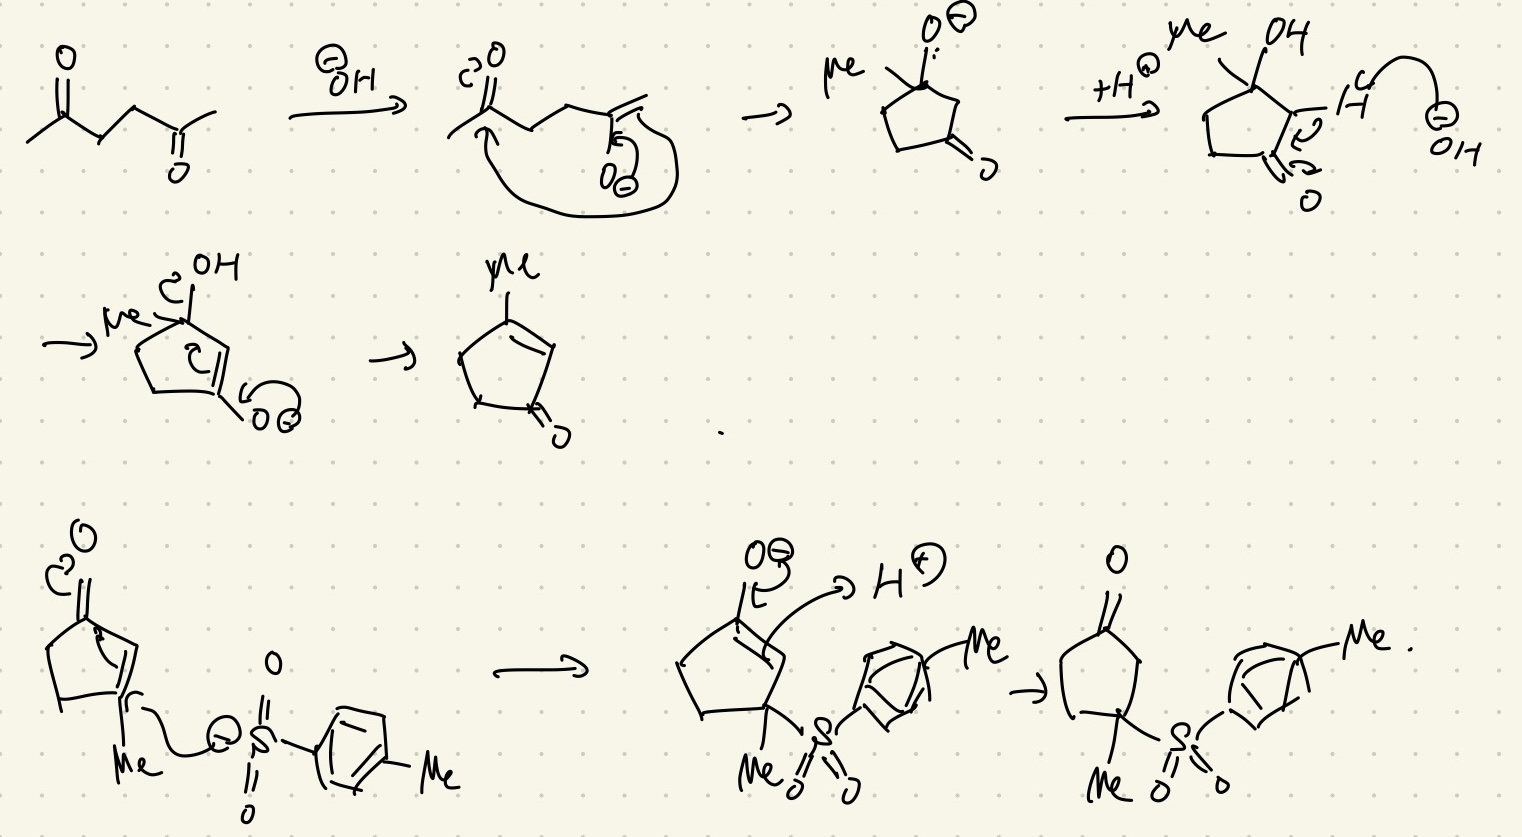 O
⊖OH
O
O
O⊖
Me
O⊖
O
+H⊕
Me
OH
H
⊖OH
O
Me
OH
O⊖
Me
O
O
Me
⊖
O
S
O
Me
O⊖
H⊕
Me
S
O
O
Me
O
Me
S
O
O
Me